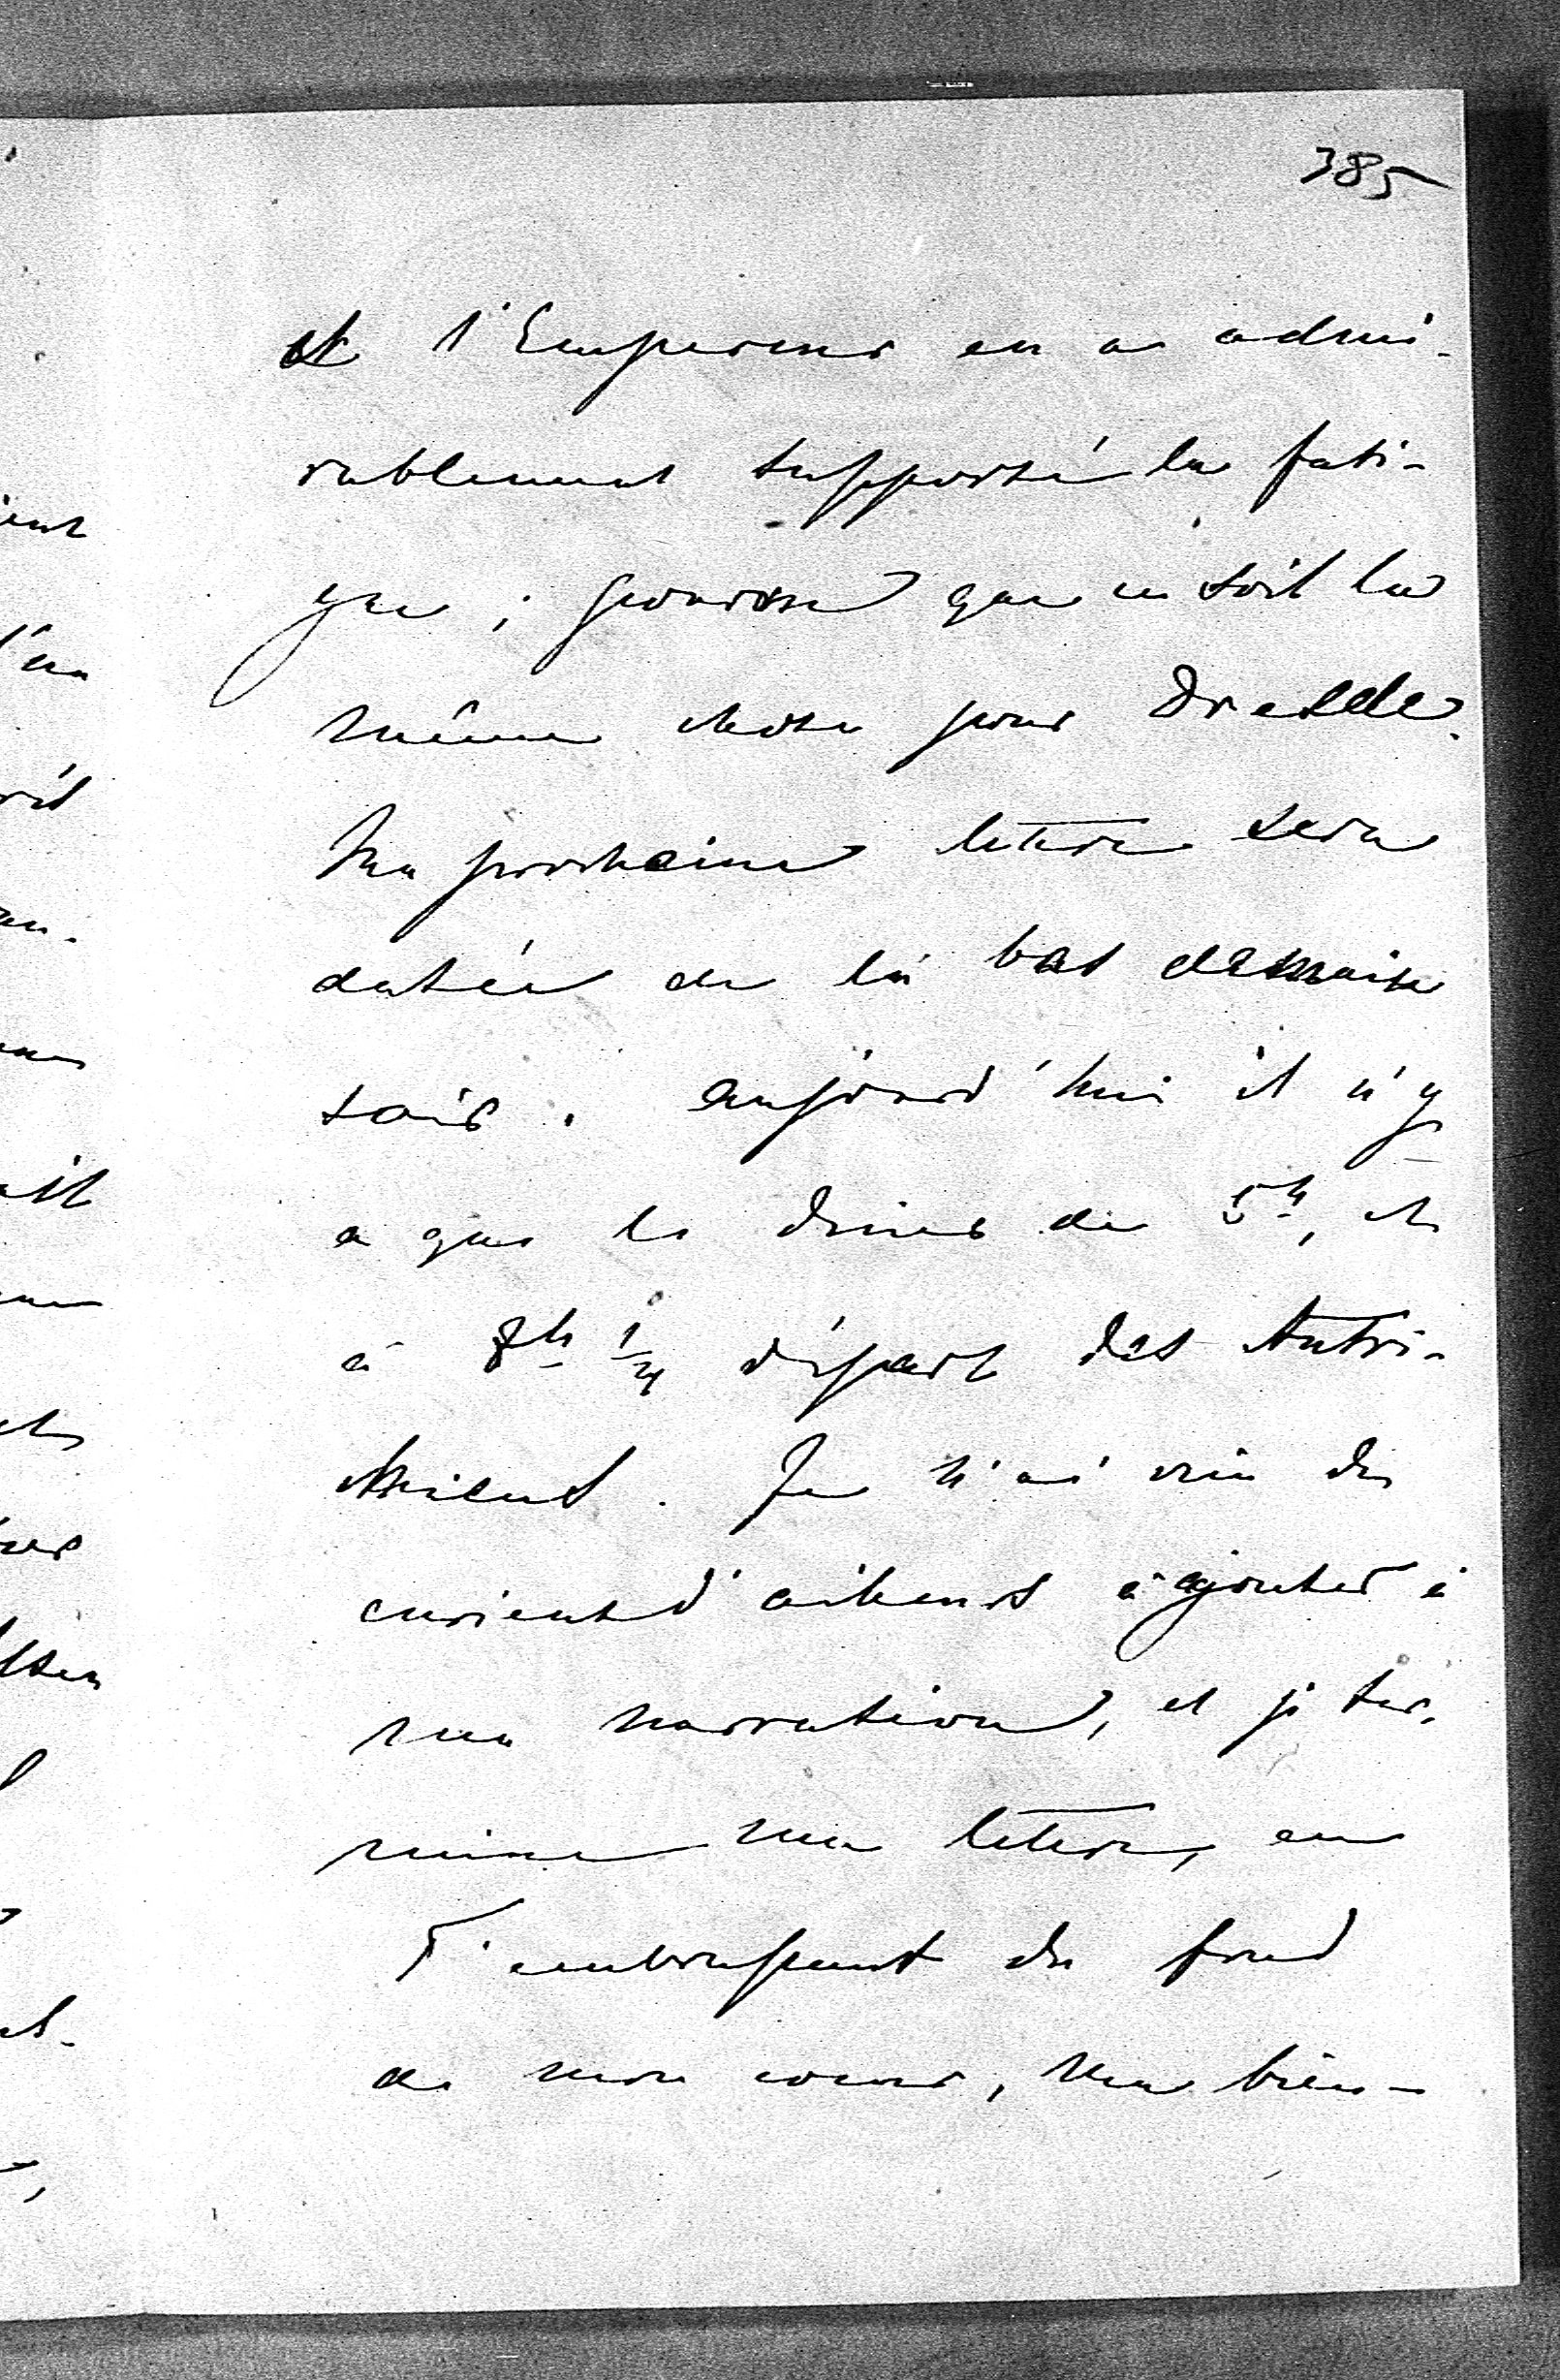 385
et l'Empereur en a admi-
rablement supporté la fati-
gue ; pourvu que ce soit la
même chose pour Dresde.
Ma prochaine lettre sera
datée de là bas demain
soir. aujourd'hui il n'y
a que le diner de 5h, et
à 8h 1/4 départ des Autri-
chiens. Je n'ai rien de
curieux d'ailleurs à ajouter à
ma narration, et je ter-
mine ma lettre, en
T'embrassant du fond
de mon coeur, ma bien-